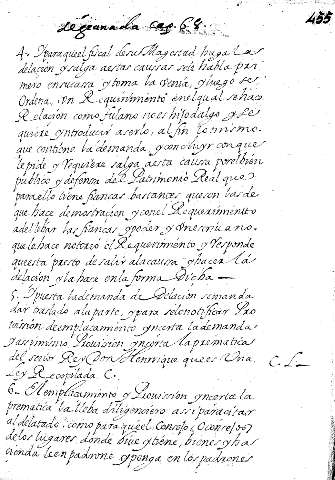 455
4. Y para que el fiscal de su Magestad haga las
delacion, y salga a estas causas se le habla pri
mero en su casa y toma la venia, y luego se
ordena, un Requirimento en el qual se hace
Relacion como fulano no es hijodalgo y se
quiere yntroducir a serlo, al fin lo mismo
que contiene la demanda, y concluyr con que
le pide y requiere salga a esta causa por el bien
publico y defensa del Patrimonio Real que
para ello tiene fiancas bastantes, que son las de
que hace demostracion y con el Requerimento
de las fiancas y poder y un escriuano
que la hace notorio el Requerimento, y Responde
questa presto de salir a la causa y hacer la
delacion y la hace en la forma Dicha
5. Y puesta la demanda de Delacion se manda
dar traslado a la parte, y para se le notificar Pro
uission de emplacamiento yncerta la demanda
y assimismo Prouission yncerta la prematica
del señor Rey Don Henrrique que es Una
Ley Recopilada C. C. L
6. El emplicamiento y Prouission yncerta la
prematica la lleba diligenciero assi para citar
al delatado como para que el Consejo, o Consejos
de los lugares donde biue y tiene, bienes y ha
cienda le enpadrone y ponga en los padrones